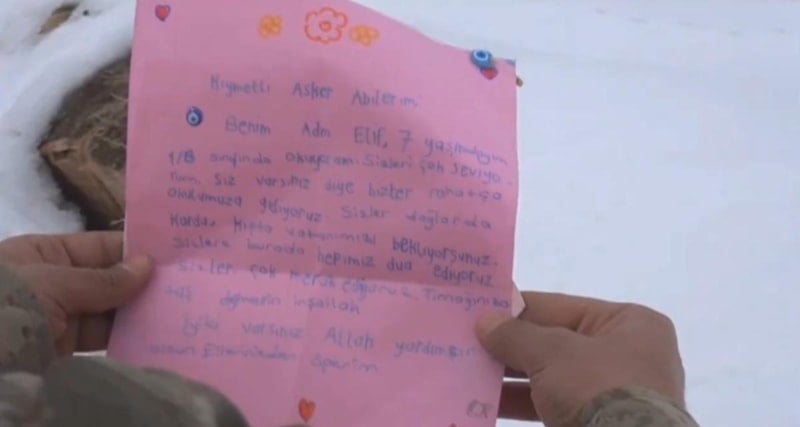 Kıymetli Asker Abilerim
Benim Adım Elif, 7 yaşındayım
1/B sınıfında okuyorum. Sizleri çok seviyo-
rum. Siz varsınız diye bizler rahatça
okulumuza gidiyoruz Sizler dağlarda
Karda, Kışta vatanımızı bekliyorsunuz.
Sizlere burada hepimiz dua ediyoruz
Sizleri çok merak ediyoruz. Tırnağınıza
taş değmesin inşallah
İyiki varsınız Allah yardımcınız
olsun Ellerinizden öperim